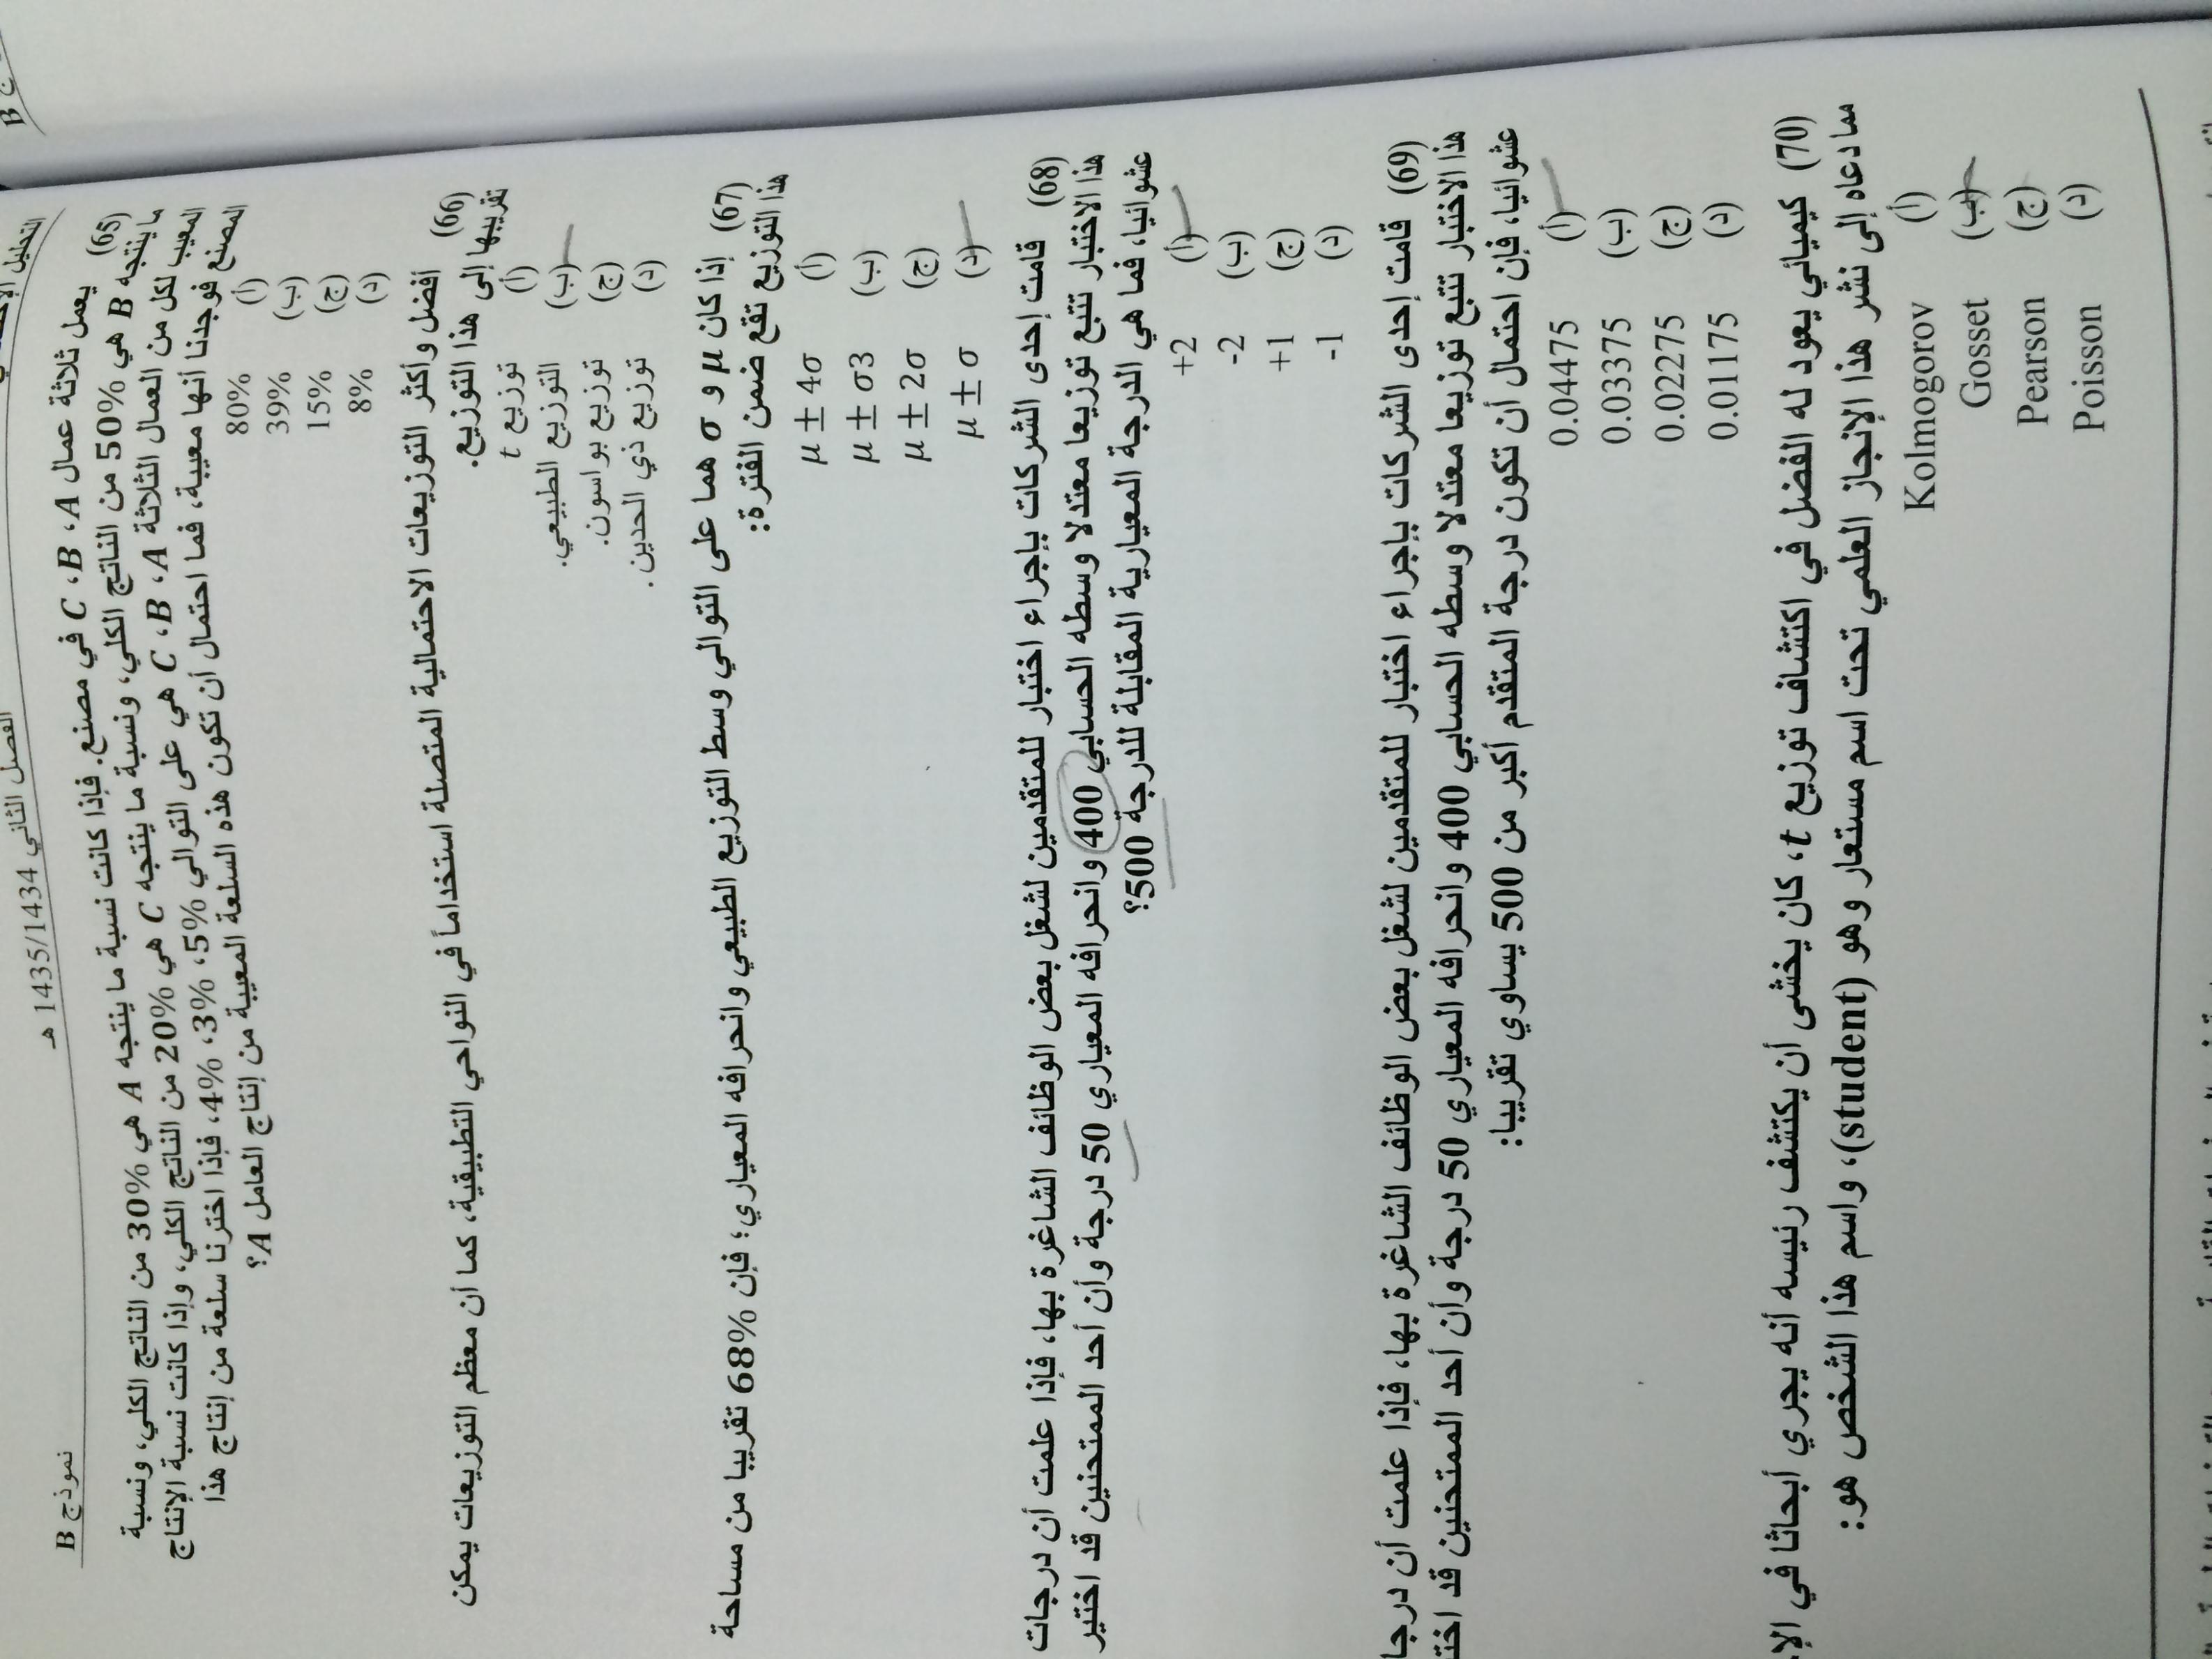 التحليل
الفصل الثاني 1435/1434 هـ
نموذج B
(65) يعمل ثلاثة عمال A، B، C في مصنع. فإذا كانت نسبة ما ينتجه A هي %30 من الناتج الكلي، ونسبة
ما ينتجه B هي %50 من الناتج الكلي، ونسبة ما ينتجه C هي %20 من الناتج الكلي، وإذا كانت نسبة الإنتاج
المعيب لكل من العمال الثلاثة A، B، C هي على التوالي %5، %3، %4، فإذا اخترنا سلعة من إنتاج هذا
المصنع فوجدنا أنها معيبة، فما احتمال أن تكون هذه السلعة المعيبة من إنتاج العامل A؟
(أ) 80%
(ب) 39%
(ج) 15%
(د) 8%
(66) أفضل وأكثر التوزيعات الاحتمالية المتصلة استخداماً في النواحي التطبيقية، كما أن معظم التوزيعات يمكن
تقريبها إلى هذا التوزيع.
(أ) توزيع t
(ب) التوزيع الطبيعي.
(ج) توزيع بواسون.
(د) توزيع ذي الحدين.
(67) إذا كان μ و σ هما على التوالي وسط التوزيع الطبيعي وانحرافه المعياري؛ فإن %68 تقريبا من مساحة
هذا التوزيع تقع ضمن الفترة:
(أ) μ ± 4σ
(ب) μ ± σ3
(ج) μ ± 2σ
(د) μ ± σ
(68) قامت إحدى الشركات بإجراء اختبار للمتقدمين لشغل بعض الوظائف الشاغرة بها، فإذا علمت أن درجات
هذا الاختبار تتبع توزيعا معتدلا وسطه الحسابي 400 وانحرافه المعياري 50 درجة وأن أحد الممتحنين قد اختير
عشوائيا، فما هي الدرجة المعيارية المقابلة للدرجة 500؟
(أ) +2
(ب) -2
(ج) +1
(د) -1
(69) قامت إحدى الشركات بإجراء اختبار للمتقدمين لشغل بعض الوظائف الشاغرة بها، فإذا علمت أن درجا
هذا الاختبار تتبع توزيعا معتدلا وسطه الحسابي 400 وانحرافه المعياري 50 درجة وأن أحد الممتحنين قد اخت
عشوائيا، فإن احتمال أن تكون درجة المتقدم أكبر من 500 يساوي تقريبا:
(أ) 0.04475
(ب) 0.03375
(ج) 0.02275
(د) 0.01175
(70) كيميائي يعود له الفضل في اكتشاف توزيع t، كان يخشى أن يكتشف رئيسه أنه يجري أبحاثا في الإ
مما دعاه إلى نشر هذا الإنجاز العلمي تحت اسم مستعار وهو (student)، واسم هذا الشخص هو:
(أ) Kolmogorov
(ب) Gosset
(ج) Pearson
(د) Poisson